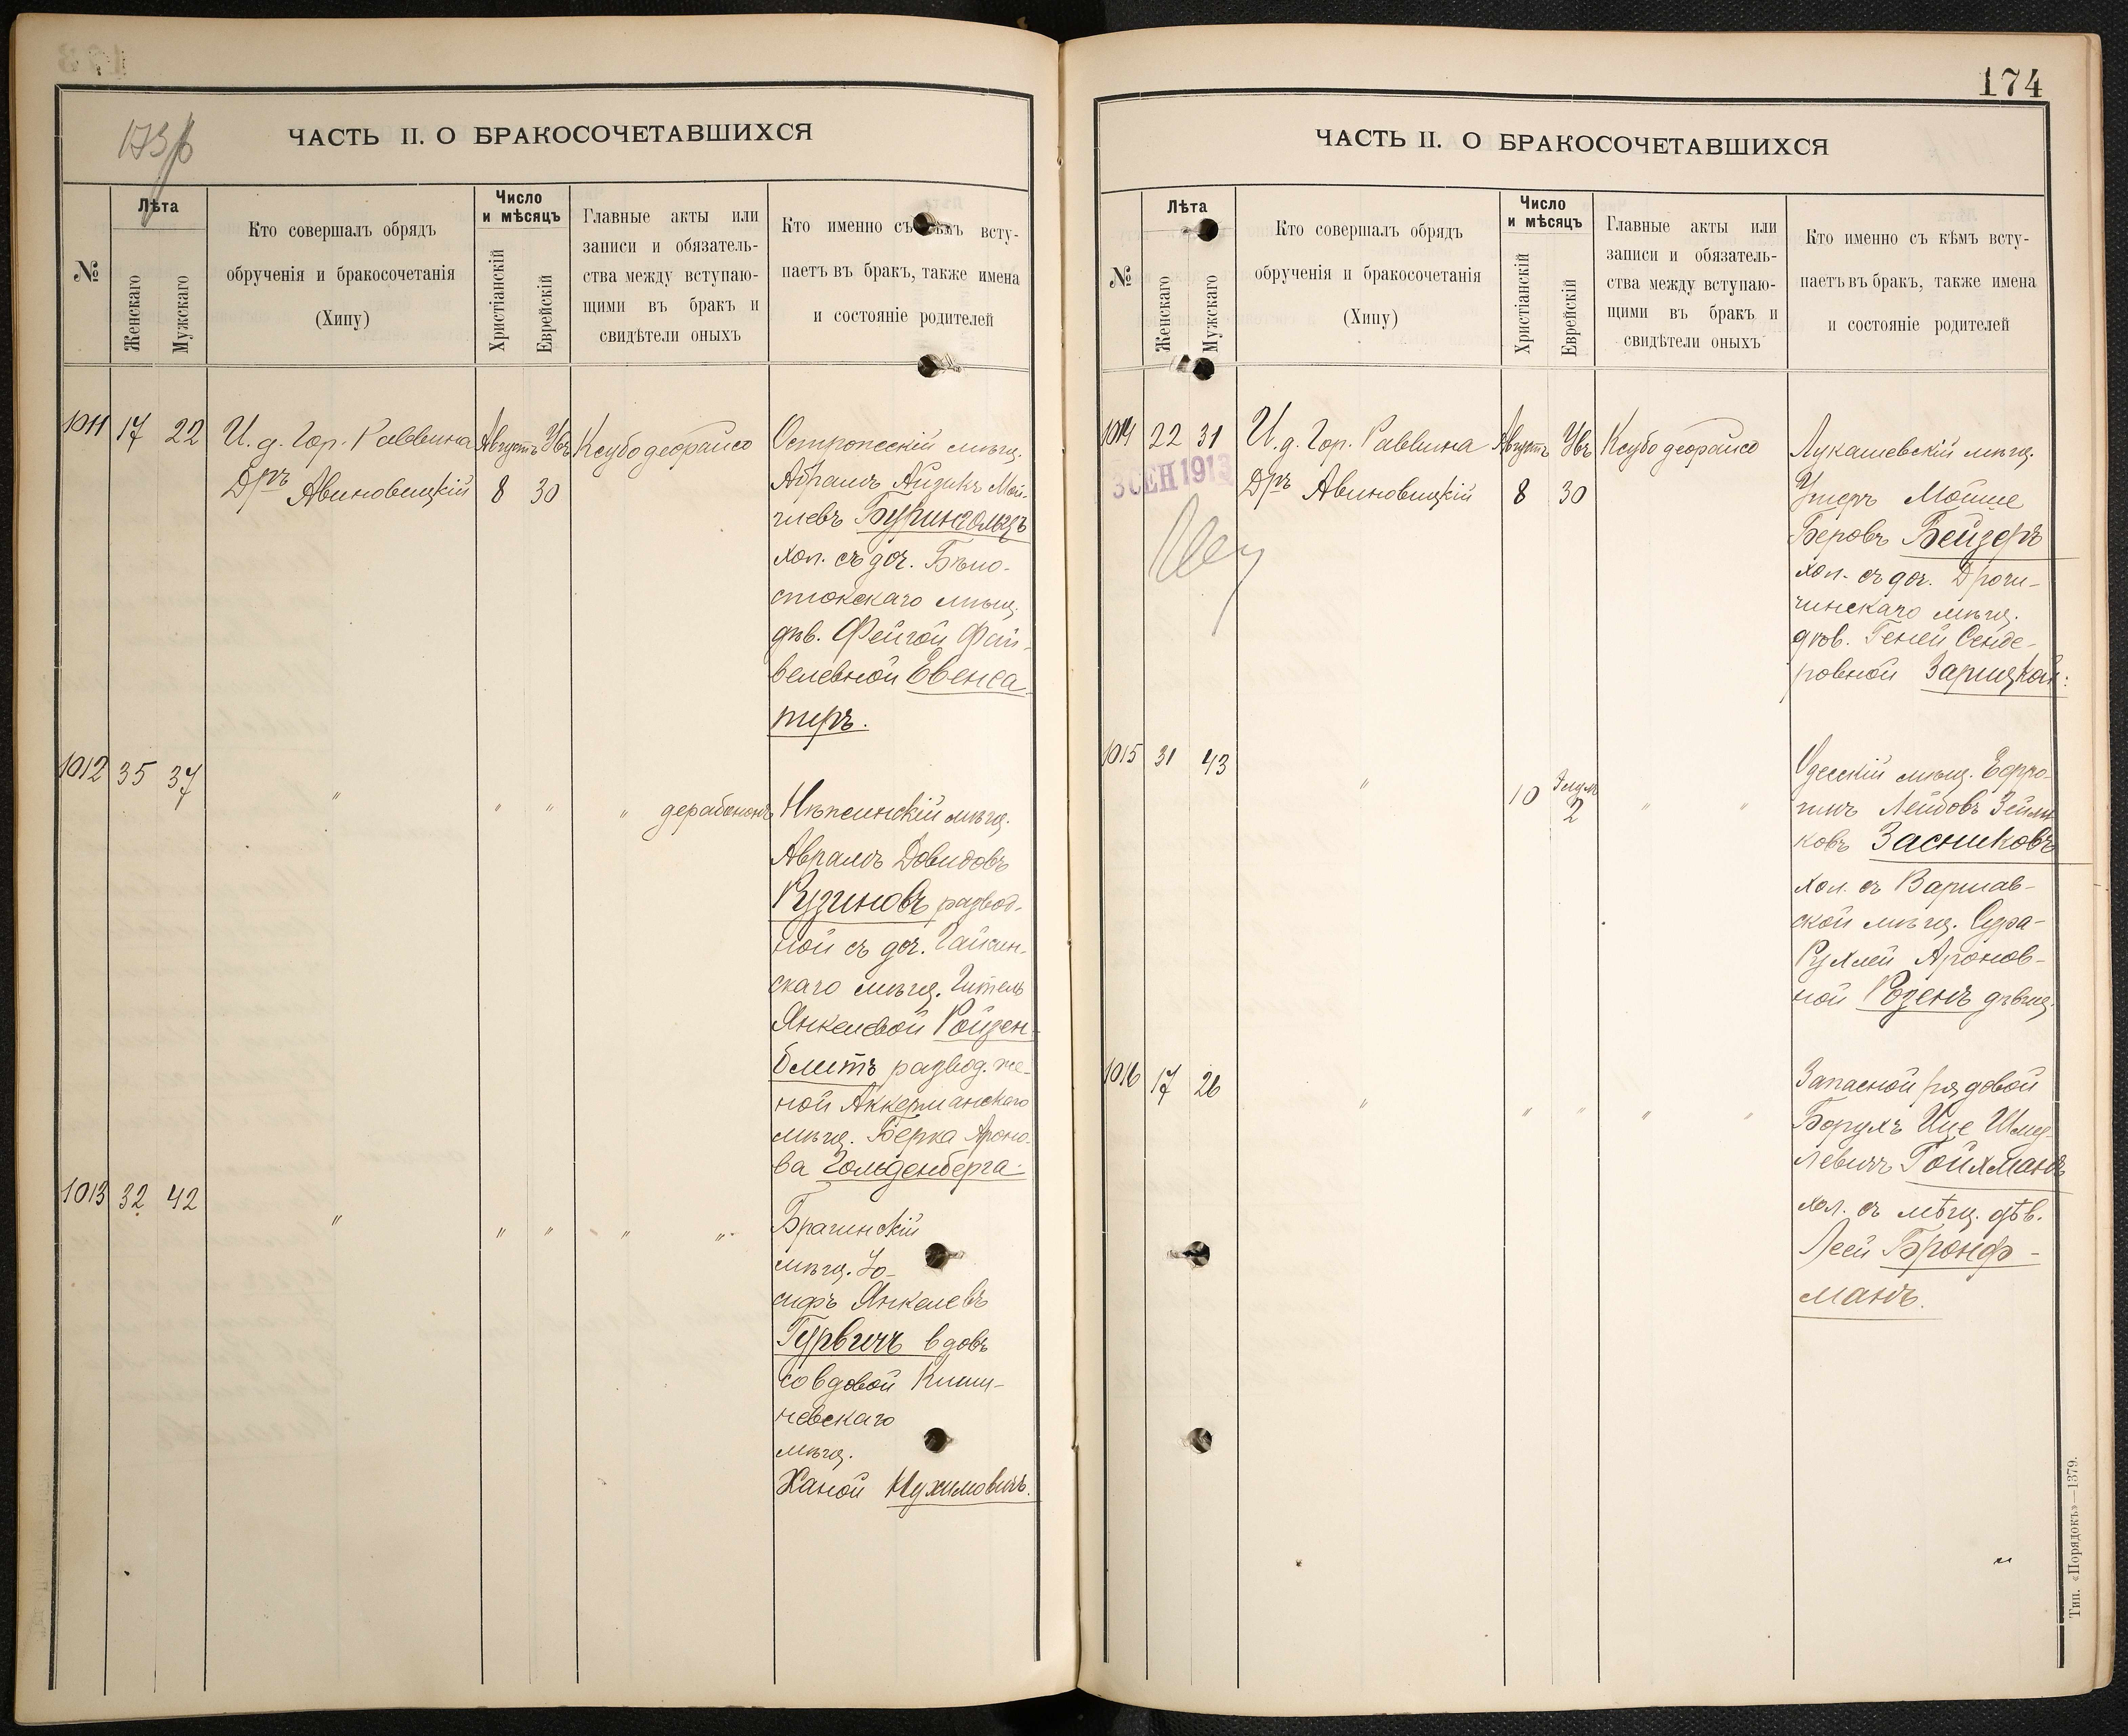 173/б
ЧАСТЬ II. О БРАКОСОЧЕТАВШИХСЯ
№
Лѣта
Женскаго
Мужскаго
Кто совершалъ обрядъ
обрученія и бракосочетанія
(Хипу)
Число
и мѣсяцъ
Христіанскій
Еврейскій
Главные акты или
записи и обязатель-
ства между вступаю-
щими въ бракъ и
свидѣтели оныхъ
Кто именно съ кѣмъ всту-
паетъ въ бракъ, также имена
и состояніе родителей
1011 17 22
И. д. Гор. Раввина
Дръ Авиновицкій
Августъ
8 30
Ксубо деорайсо
Остропесскій мѣщ.
Абрамъ Айзикъ Мой-
Бурингольцъ
хол. съ доч. Бѣло-
стокскаго мѣщ.
дѣв. Фейгой Фай-
велевной Евенса-
пиръ.
1012 35 37
" " " " дерабононъ
мѣщ.
Аврамъ Довидовъ
Рузиновъ развод-
ной съ доч. Гайсин-
скаго мѣщ. Гитель
Янкелевой Ройзен-
блитъ развод. же-
ной Аккерманскаго
мѣщ. Берка Ароно-
ва Гольденберга.
1013 32 42
" " " " "
Брагинскій
мѣщ. Іо-
сифъ Янкелевъ
Гурвичъ вдовъ
со вдовой Киши-
невскаго
мѣщ.
Ханой Нухимовичъ.
174
ЧАСТЬ II. О БРАКОСОЧЕТАВШИХСЯ
№
Лѣта
Женскаго
Мужскаго
Кто совершалъ обрядъ
обрученія и бракосочетанія
(Хипу)
Число
и мѣсяцъ
Христіанскій
Еврейскій
Главные акты или
записи и обязатель-
ства между вступаю-
щими въ бракъ и
свидѣтели оныхъ
Кто именно съ кѣмъ всту-
паетъ въ бракъ, также имена
и состояніе родителей
1014 22 31
3 СЕН 1913
И. д. Гор. Раввина
Дръ Авиновицкій
Августъ
8 30
Ксубо деорайсо
Лукашевскій мѣщ.
Ушеръ Мойше
Беровъ Бейзеръ
хол. съ доч. Дроги-
чинскаго мѣщ.
дѣв. Геней Сенде-
ровной Зарицкой.
1015 31 43
" 10 Элулъ
2 " "
Одесскій мѣщ. Ефро-
имъ Лейбовъ Зейли-
ковъ Засниковъ
хол. съ Варшав-
ской мѣщ. Сура-
Рухлей Аронов-
ной Розенъ дѣвиц.
1016 17 26
" " " " "
Запасной рядовой
Борухъ Ице Шму-
левичъ Гойхманъ
хол. съ мѣщ. дѣв.
Леей Бронф-
манъ.
Тип. «Порядокъ»—1379.